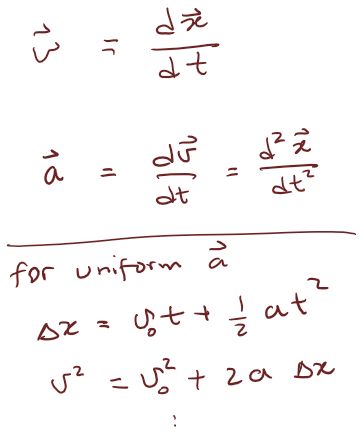 v⃗ = dx⃗/dt
a⃗ = dv⃗/dt = d²x⃗/dt²
for uniform a⃗
Δx = v₀t + ½ at²
v² = v₀² + 2a Δx
⋮